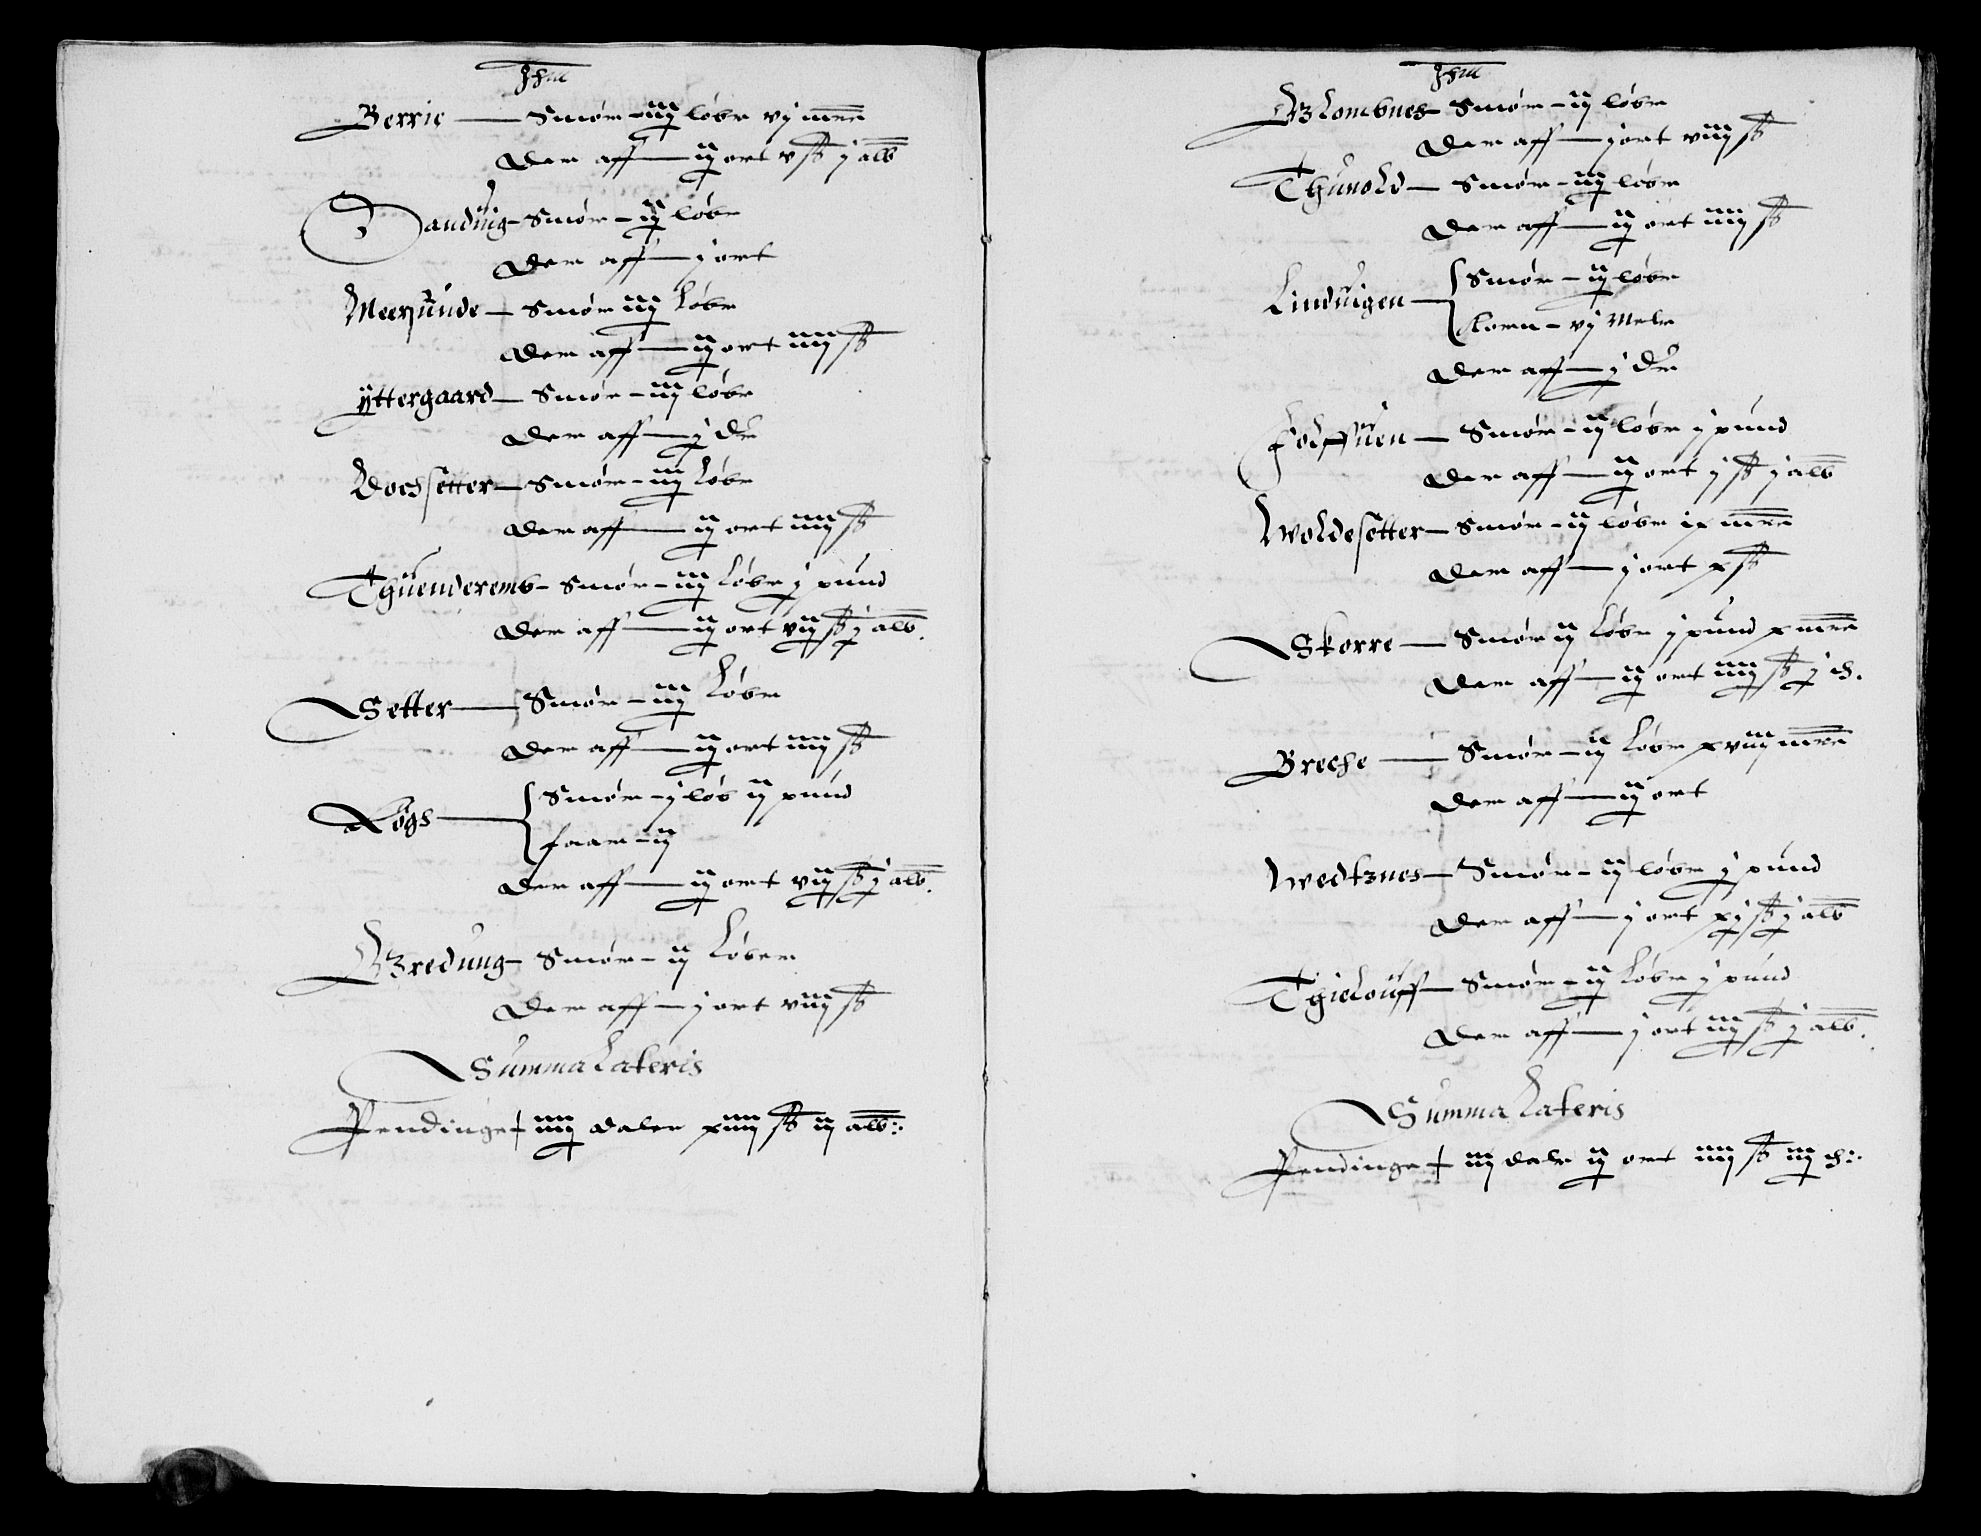 Jhm
Berrie — Smør – iij løbr vj mrk
Der aff — ij ort v ß j alb
Sanduig – Smør – ij løbr
Der aff — j ort
Meersunde — Smør iij Løbr
Der aff — ij ort iiij ß
Yttergaard — Smør – iij løbr
Der aff — j dlr
Woessetter — Smør – iij Løbr
Der aff — ij ort iiij ß
Thuenderemb – Smør – iij Løbr j pund
Der aff — ij ort vij ß j alb.
Setter — Smør – iij Løbr
Der aff — ij ort iiij ß
Røgs — Smør – j løb ij pund
faar – ij
Der aff — ij ort vij ß j alb.
Bredung – Smør – ij Løber
Der aff — j ort viij ß
Summa Lateris
Pendinge iiij daler xiiij ß ij alb:
Jhm
Blombnes – Smør – ij løbr
Der aff — j ort viij ß
Thunold — Smør – iij løbr
Der aff — ij ort iiij ß
Linduigen — Smør – ij løbr
Korn – vj Meler
Der aff — j dlr
Fodssuen — Smør – ij løbr j pund
Der aff — ij ort j ß j alb
Woldesetter — Smør – ij løbr ix mrk
Der aff — j ort x ß
Skorre — Smør ij Løbr j pund x mrk
Der aff — ij ort iiij ß j ch.
Breche — Smør – ij Løbr xviij mrk
Der aff — ij ort
Wedtznes — Smør – ij løbr j pund
Der aff — j ort xj ß j alb
Thielouff — Smør – ij Løbr j pund
Der aff — j ort iij ß j alb.
Summa Lateris
Pendinge iij dalr ij ort iiij ß iij ch: